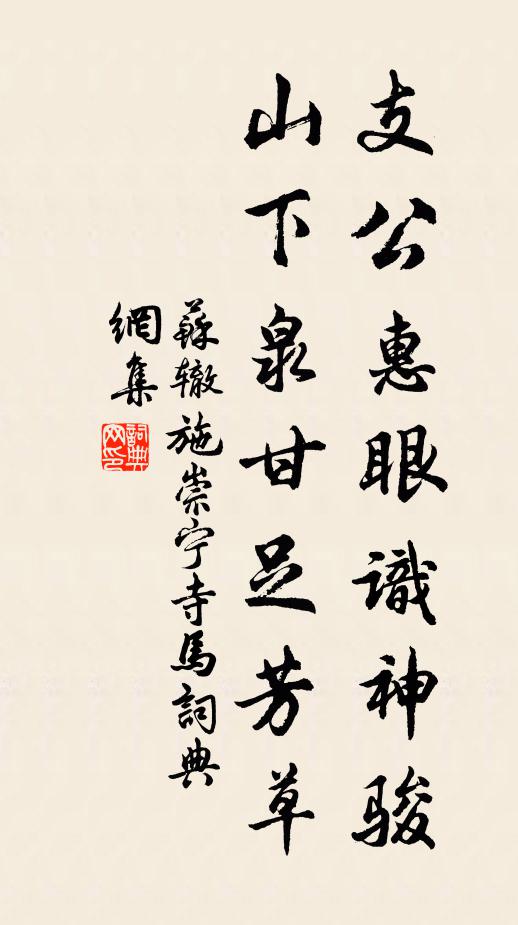 支公惠眼識神骏
山下泉甘足芳草
蘇辙施崇宁寺馬詞典
網集
詞典
网印